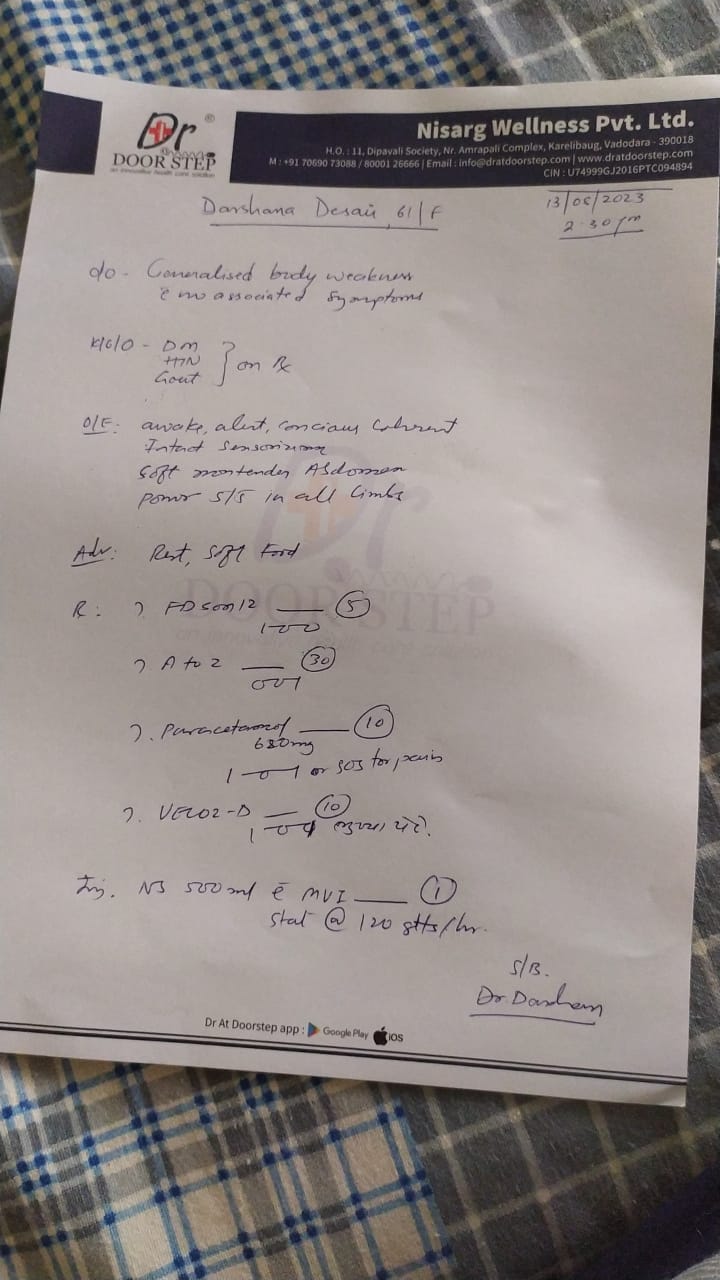 Dr
DOOR STEP
an innovative health care solution
Nisarg Wellness Pvt. Ltd.
H.O. : 11, Dipavali Society, Nr. Amrapali Complex, Karelibaug, Vadodara - 390018
M : +91 70690 73088 / 80001 26666 | Email : info@dratdoorstep.com | www.dratdoorstep.com
CIN : U74999GJ2016PTC094894
Darshana Desai 61/F
13/05/2023
2.30 pm
c/o - Generalised body weakness
c̄ no associated symptoms
K/C/O - DM
HTN
Gout } on Rx
O/E: awake, alert, concious coherent
Intact Sensorium
Soft nontender Abdomen
power 5/5 in all limbs
Adv: Rest, Soft Food
R: 12 — (5)
1-0-0
A to Z — (30)
0-0-1
Paracetamol — (10)
650mg
1-0-1 or SOS for pain
VELOZ-D — (10)
1-0-1
Inj. NS 500 ml c̄ MVI — (1)
Stat @ 120 gtts/hr.
S/B.
Dr. Darshan
Dr
DOOR STEP
Dr At Doorstep app : Google Play iOS